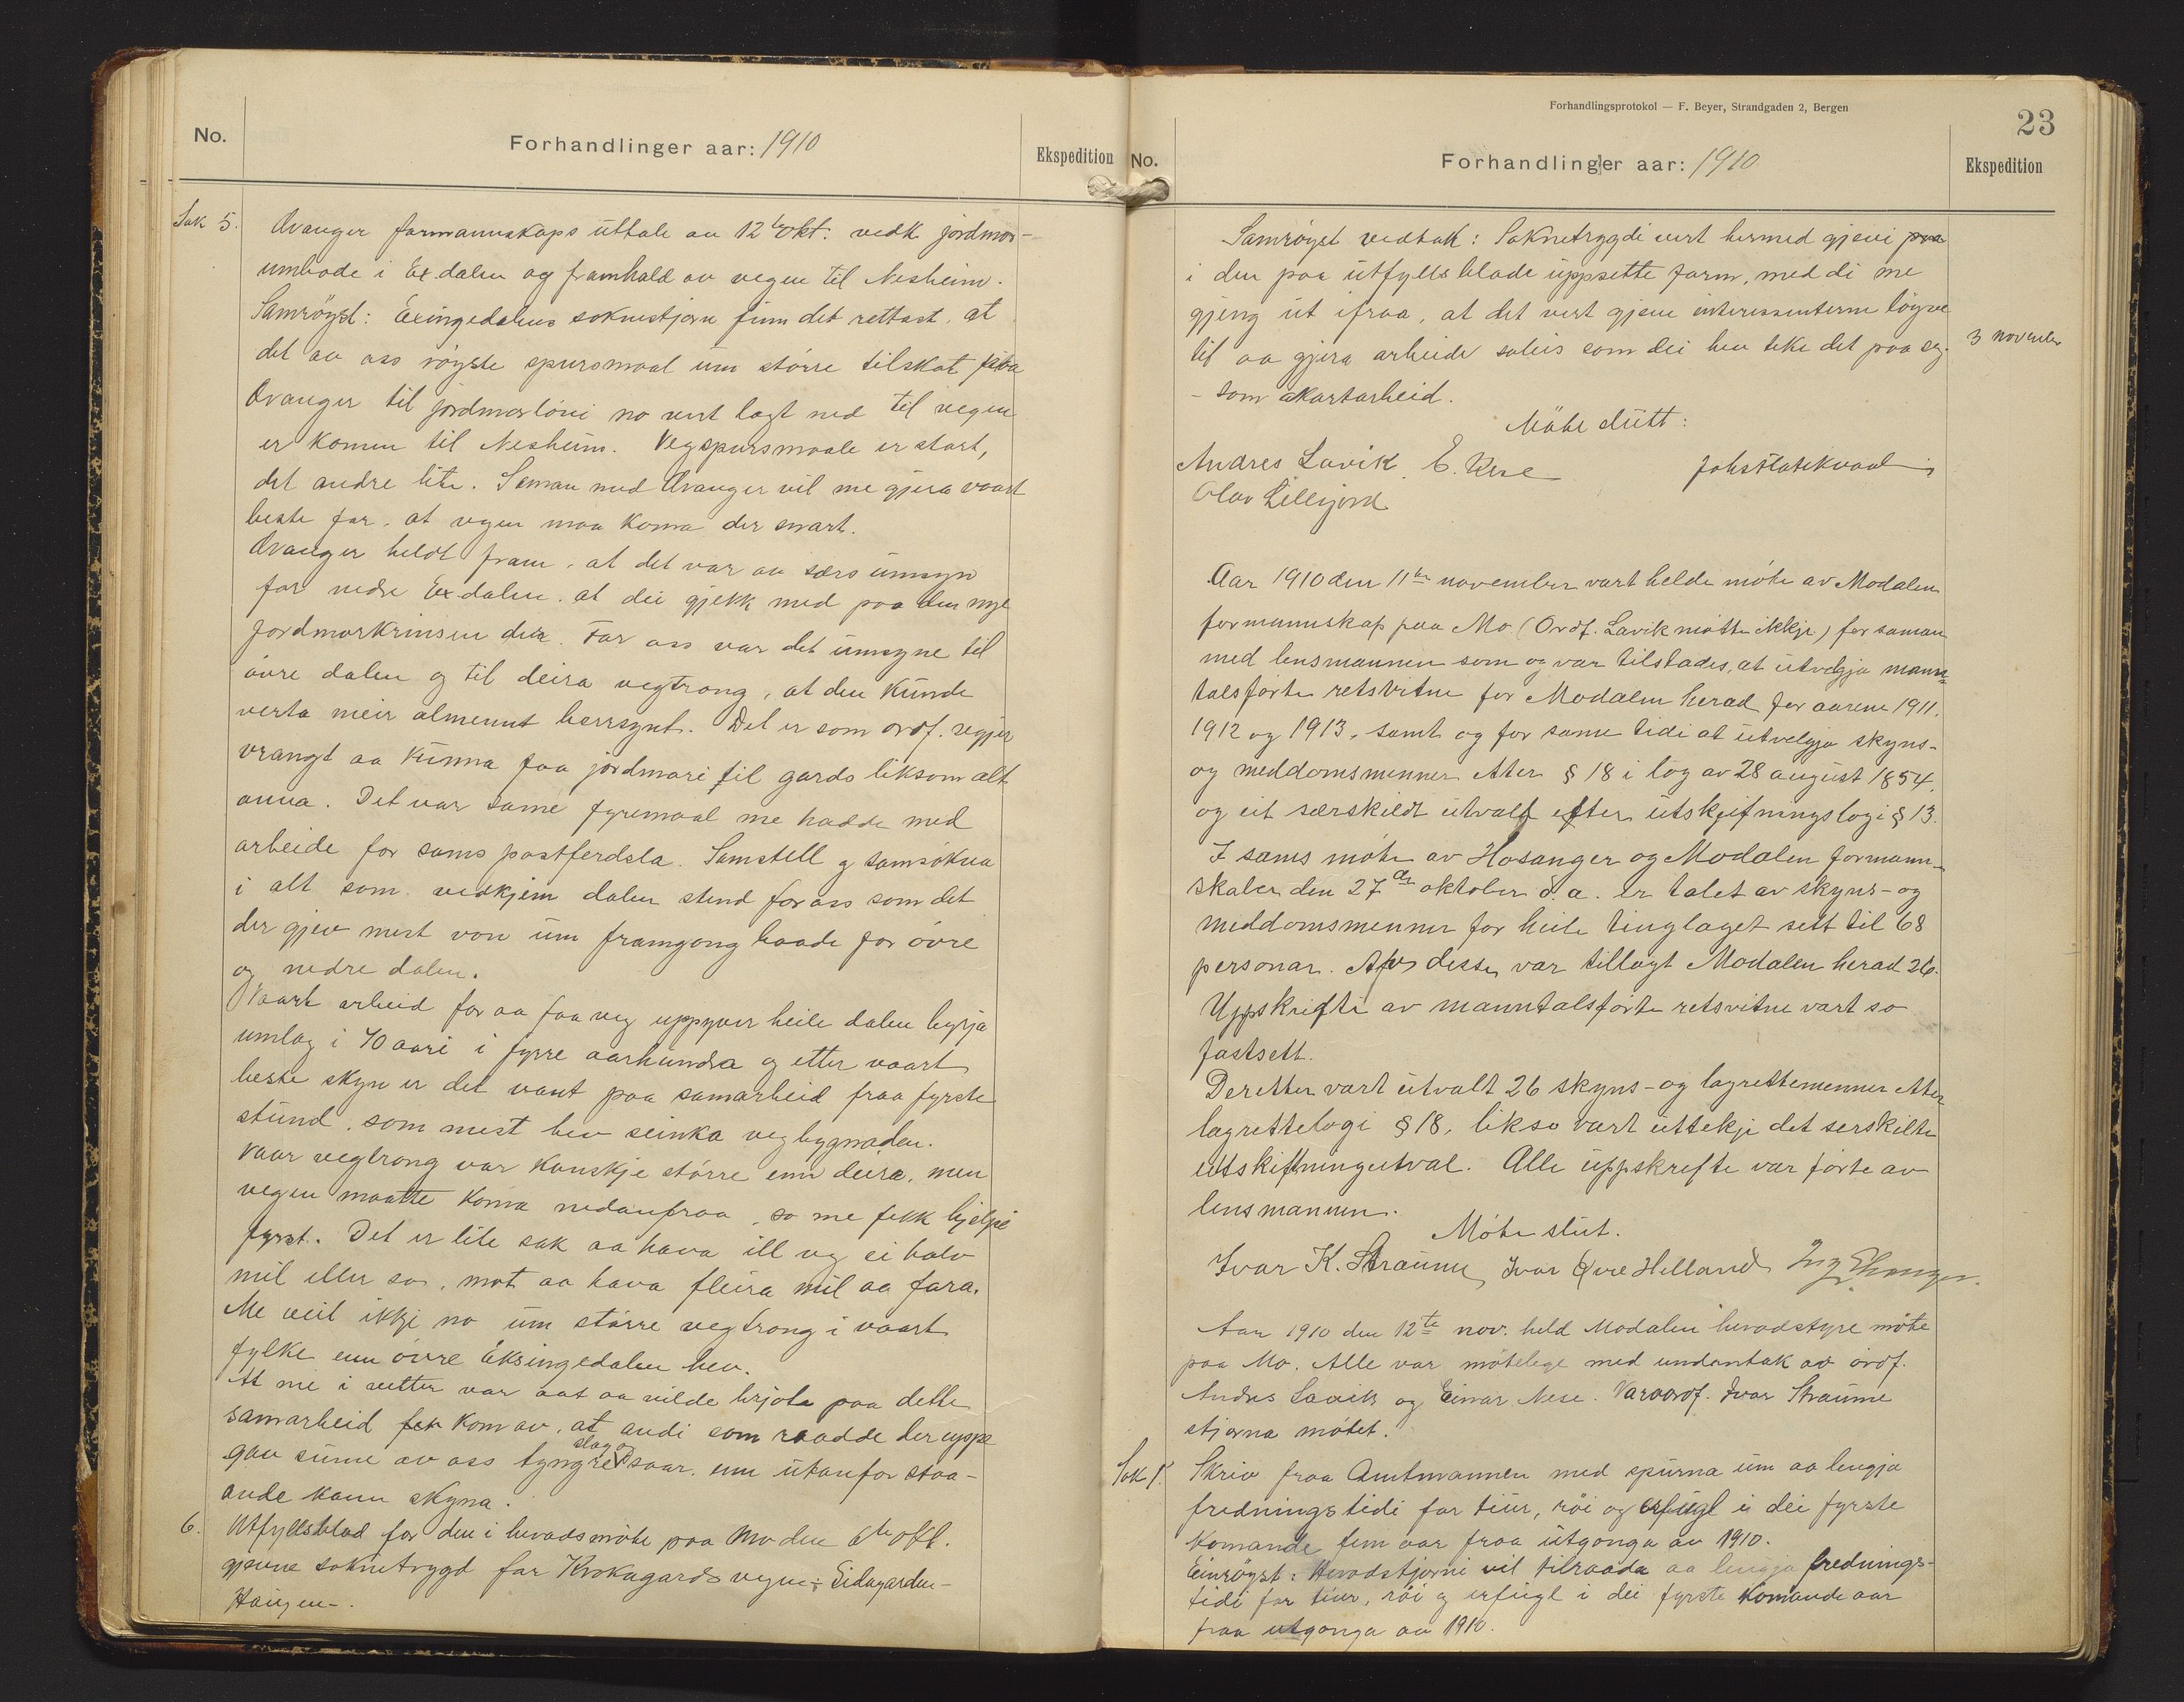 No.
Forhandlinger aar: 1910
Ekspedition
Sak 5.
Evanger formannskaps uttale av 12te okt. vedk. jordmor-
umbode i Ex.dalen og framhald av vegen til Nesheim.
Samröyst: Exingedalens soknestjorn finn det rettast, at
det av oss röyste spursmaal um större tilskot fraa
Evanger til jordmorlöni no vert lagt ned til vegen
er komen til Nesheim. Vegspursmaale er stort,
det andre lite. Saman med Evanger vil me gjera vaart
beste for, at vegen maa koma der snart.
Evanger heldt fram, at det var av særs umsyn
for nedre Ex.dalen, at dei gjekk med paa den nye
jordmorkrinsen der. For oss var det umsyne til
övre dalen og til deira vegtrong, at den kunde
verta meir almennt berrsynt. Det er som ordf. segjer
vrangt aa kunna faa jordmori til gards liksom alt
anna. Det var same fyremaal me hadde med
arbeide for sams postferdsla. Samstell og samsökna
i alt som vedkjem dalen stend for oss som det
der gjev mest von um framgong baade for övre
og nedre dalen.
Vaart arbeid for aa faa veg uppyver heile dalen byrja
umlag i 70 aari i fyrre aarhundra og etter vaart
beste skyn er det vant paa samarbeid fraa fyrste
stund, som mest hev seinka vegbygnaden.
Vaar vegtrong var kanskje större enn deira, men
vegen maatte koma nedanfraa, so me fekk hjelpi
fyrst. Det er lite sak aa hava ill veg ei halv
mil eller so, mot aa hava fleira mil aa fara.
Me veit ikkje no um större vegtrong i vaart
fylke enn övre Eksingedalen hev.
At me i vetter var aat aa vilde brjota paa dette
samarbeid kom av, at andi som raadde der uppe
gav sume av oss tyngre slag og saar, enn utanfor staa-
ande kann skyna.
6.
Utfyllsblad for den i heradsmöte paa Mo den 6te okt.
gjevne soknetrygd for Krokagardsvegen: Eidagarden-
Haugen-.
Forhandlingsprotokol — F. Beyer, Strandgaden 2, Bergen
23
No.
Forhandlinger aar: 1910
Ekspedition
Samröyst vedtak: Soknetrygdi vert hermed gjevi paa
i den paa utfyllsblade uppsette form, med di me
gjeng ut ifraa, at det vert gjeve interessenterne löyve
til aa gjera arbeide soleis som dei hev teke det paa seg
- som akkortarbeid.
3 november
Möte slutt:
Andres Lavik E. Nese
Olav Lillejord
Aar 1910 den 11te november vart helde möte av Modalen
formannskap paa Mo (Ordf. Lavik mötte ikkje) for saman
med lensmannen som og var tilstades, at utvelgja mann-
talsförte retsvitne for Modalen herad for aarene 1911,
1912 og 1913, samt og for same tidi at utvelgja skyns-
og meddomsmenner etter § 18 i log av 28 august 1854,
og eit særskildt utvalg efter utskjiftningslogi § 13.
I sams möte av Hosanger og Modalen formann-
skaber den 27de oktober d.a. er talet av skyns- og
meddomsmenner for heile tinglaget sett til 68
personar. Av desse var tillagt Modalen herad 26.
Uppskrifti av manntalsförte retsvitne vart so
fastsett.
Deretter vart utvalt 26 skyns- og lagrettemenner etter
lagrettelogi § 18, likso vart uttekje det serskilte
utskiftningsutval. Alle uppskrifte var förte av
lensmannen.
Möte slut.
Ivar K. Straume Ivar Övre Helland
Aar 1910 den 12te nov. held Modalen heradstyre möte
paa Mo. Alle var mötelege med undantak av ordf.
Andres Lavik og Einar Nese. Varaordf. Ivar Straume
stjorna mötet.
Sak 1.
Skriv fraa Amtmannen med spurna um aa lengja
fredningstidi for tiur, röi og orfugl i dei fyrste
komande fem aar fraa utgonga av 1910.
Einröyst: Heradstjorni vil tilraada aa lengja frednings-
tidi for tiur, röi og orfugl i dei fyrste komande aar
fraa utgonga av 1910.